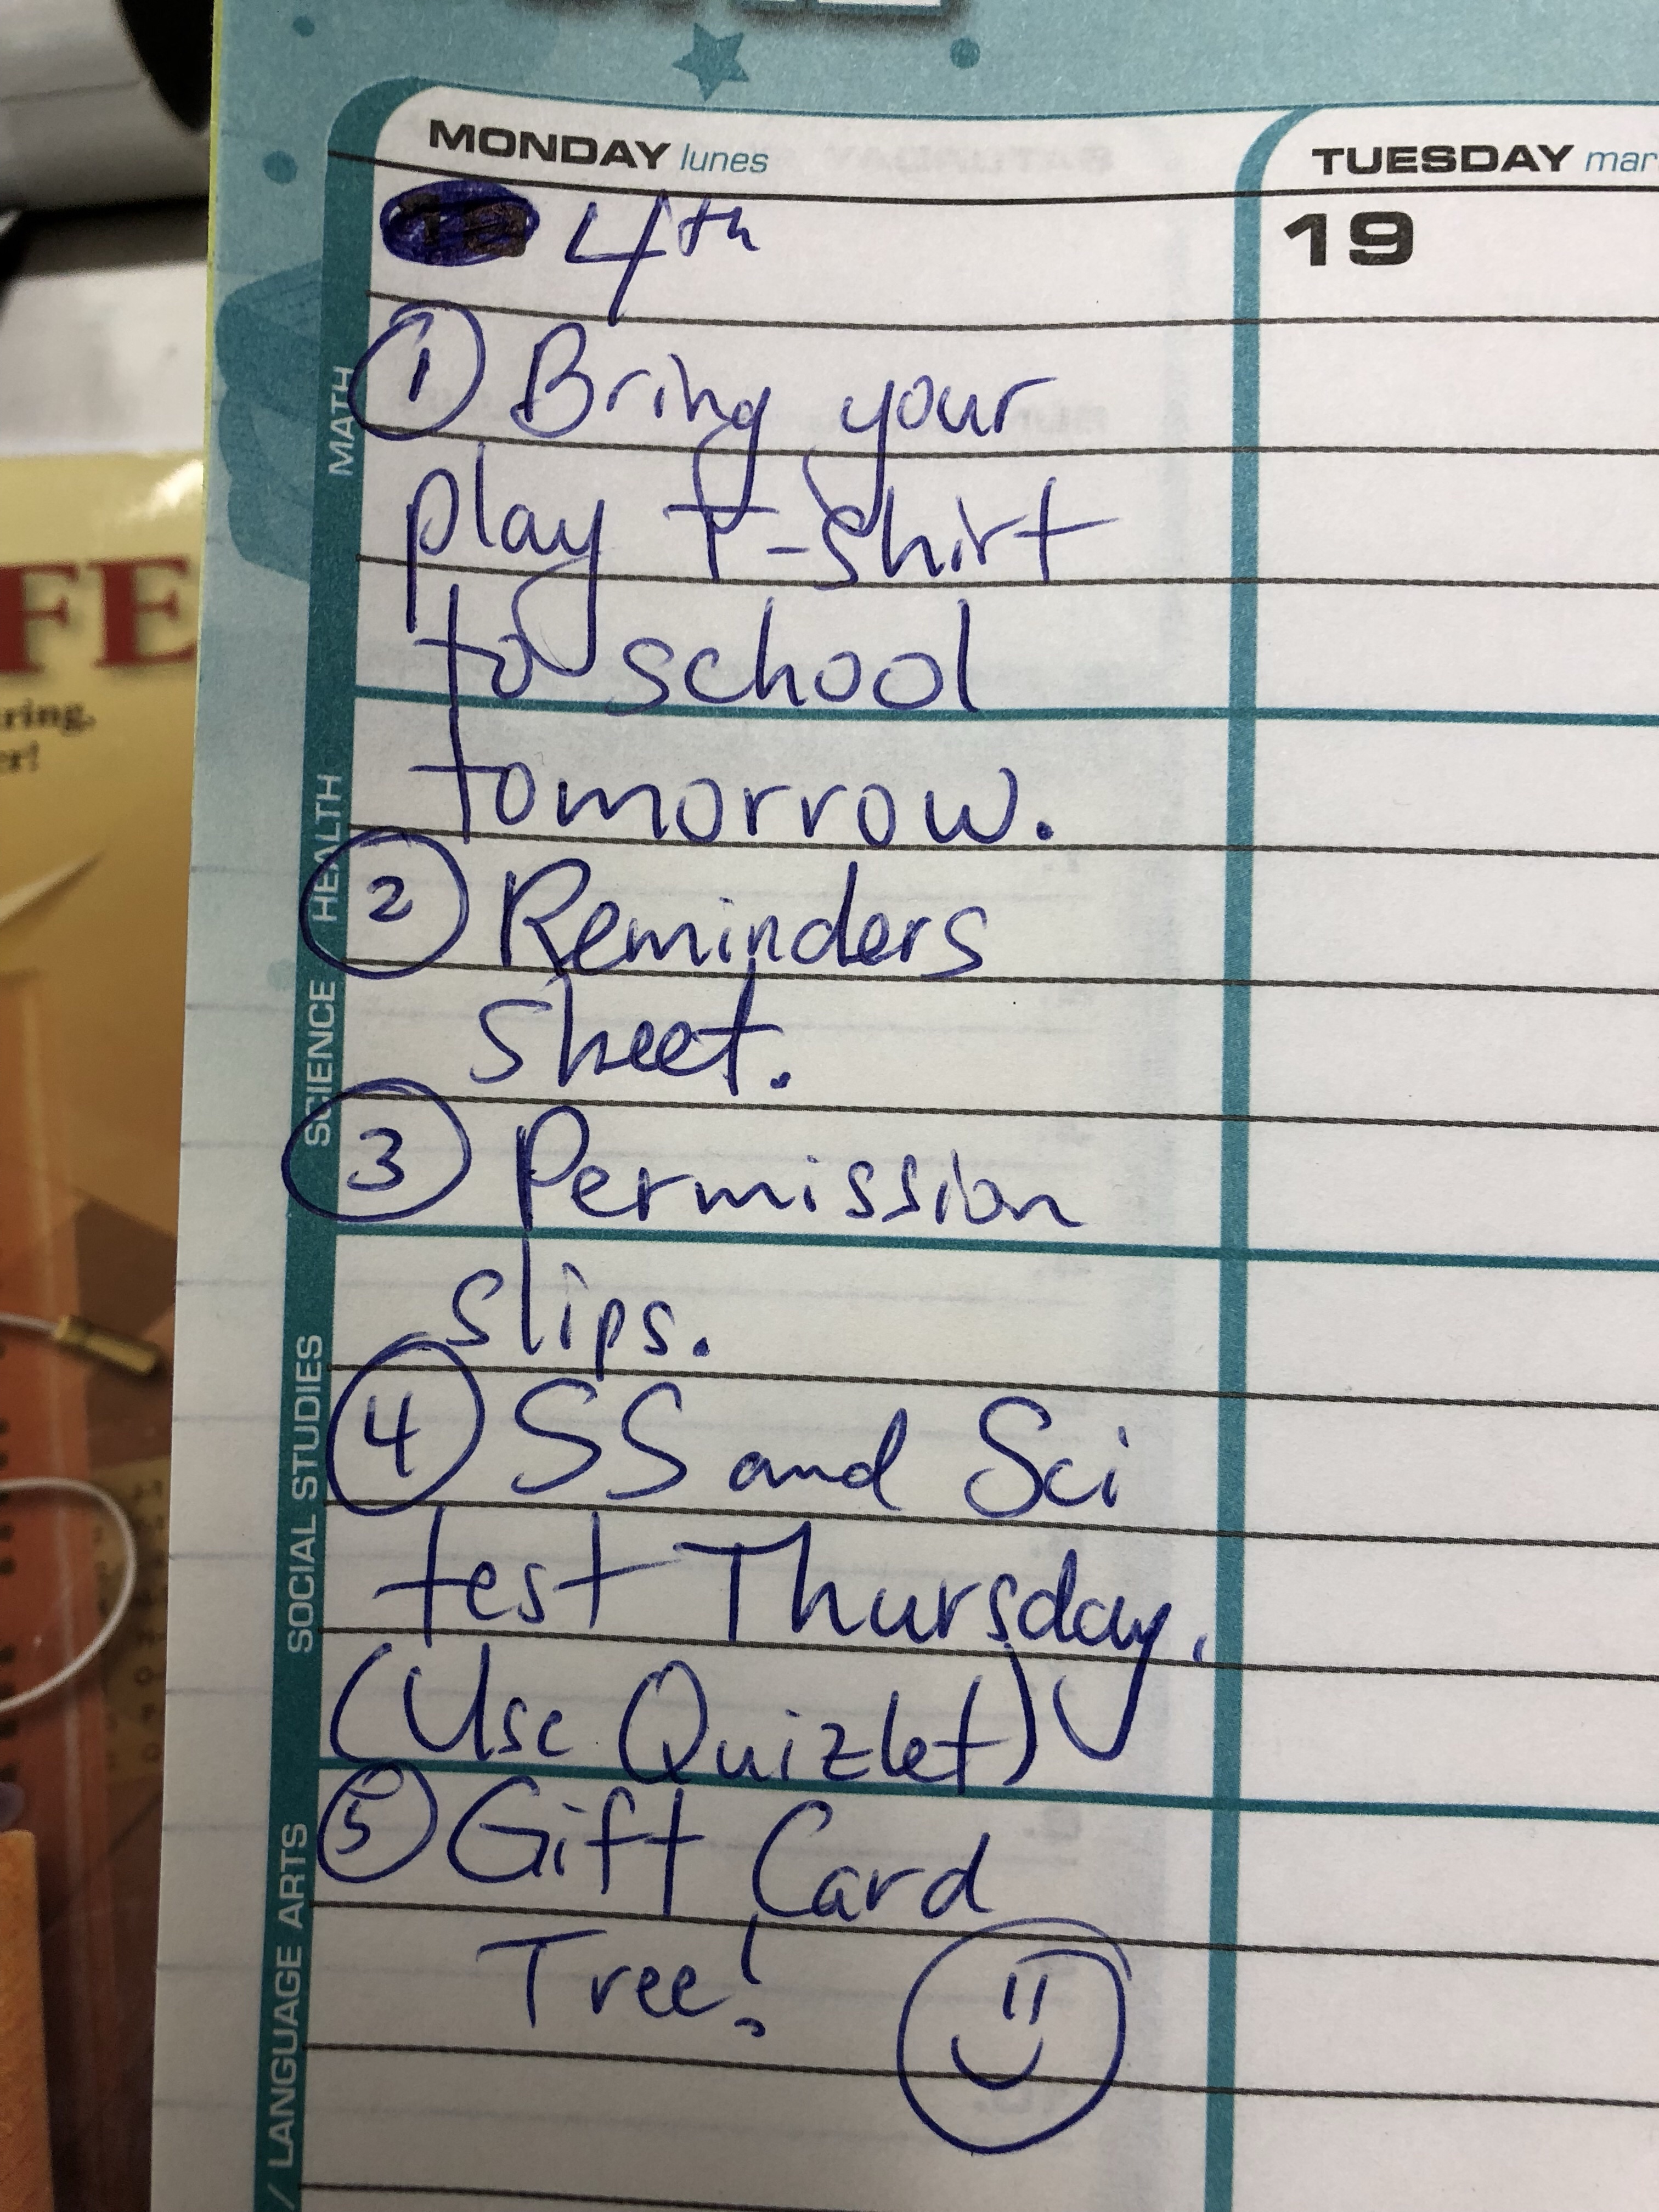 MONDAY lunes
TUESDAY mar
4th
19
① Bring your
play T-shirt
to school
tomorrow.
② Reminders
Sheet.
③ Permission
slips.
④ SS and Sci
test Thursday.
(Use Quizlet)
⑤ Gift Card
Tree!
MATH
SCIENCE HEALTH
SOCIAL STUDIES
/ LANGUAGE ARTS
FE
ring,
er!